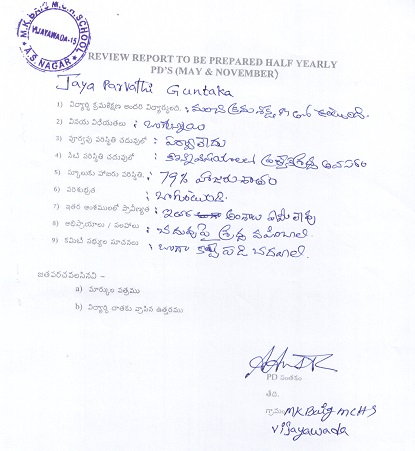 M.K.BAIG M.C.H. SCHOOL
VIJAYAWADA-15
A.S. NAGAR
REVIEW REPORT TO BE PREPARED HALF YEARLY
PD'S (MAY & NOVEMBER)
Jaya Parvathi Guntaka
1) విద్యార్థి క్రమశిక్షణ అందరి విద్యార్థులలో. : మంచి క్రమశిక్షణ
2) వినయ విధేయతలు :
3) పూర్వపు పరిస్థితి చదువులో : పర్వాలేదు
4) నేటి పరిస్థితి చదువులో : శ్రద్ధ అవసరం
5) స్కూలుకు హాజరు పరిస్థితి. : 79% హాజరు శాతం
6) పరిశుభ్రత : బాగుంటుంది.
7) ఇతర అంశములలో ప్రావీణ్యత : ఇతర అంశాలు ఏమీ లేవు
8) అభిప్రాయాలు / సలహాలు : చదువుపై శ్రద్ధ వహించాలి.
9) కమిటీ సభ్యుల సూచనలు : బాగా కష్టపడి చదవాలి.
జతపరచవలసినవి –
a) మార్కుల పత్రము
b) విద్యార్థి దాతకు వ్రాసిన ఉత్తరము
PD సంతకం
తేది.
గ్రామం MK Baig MCHS
Vijayawada